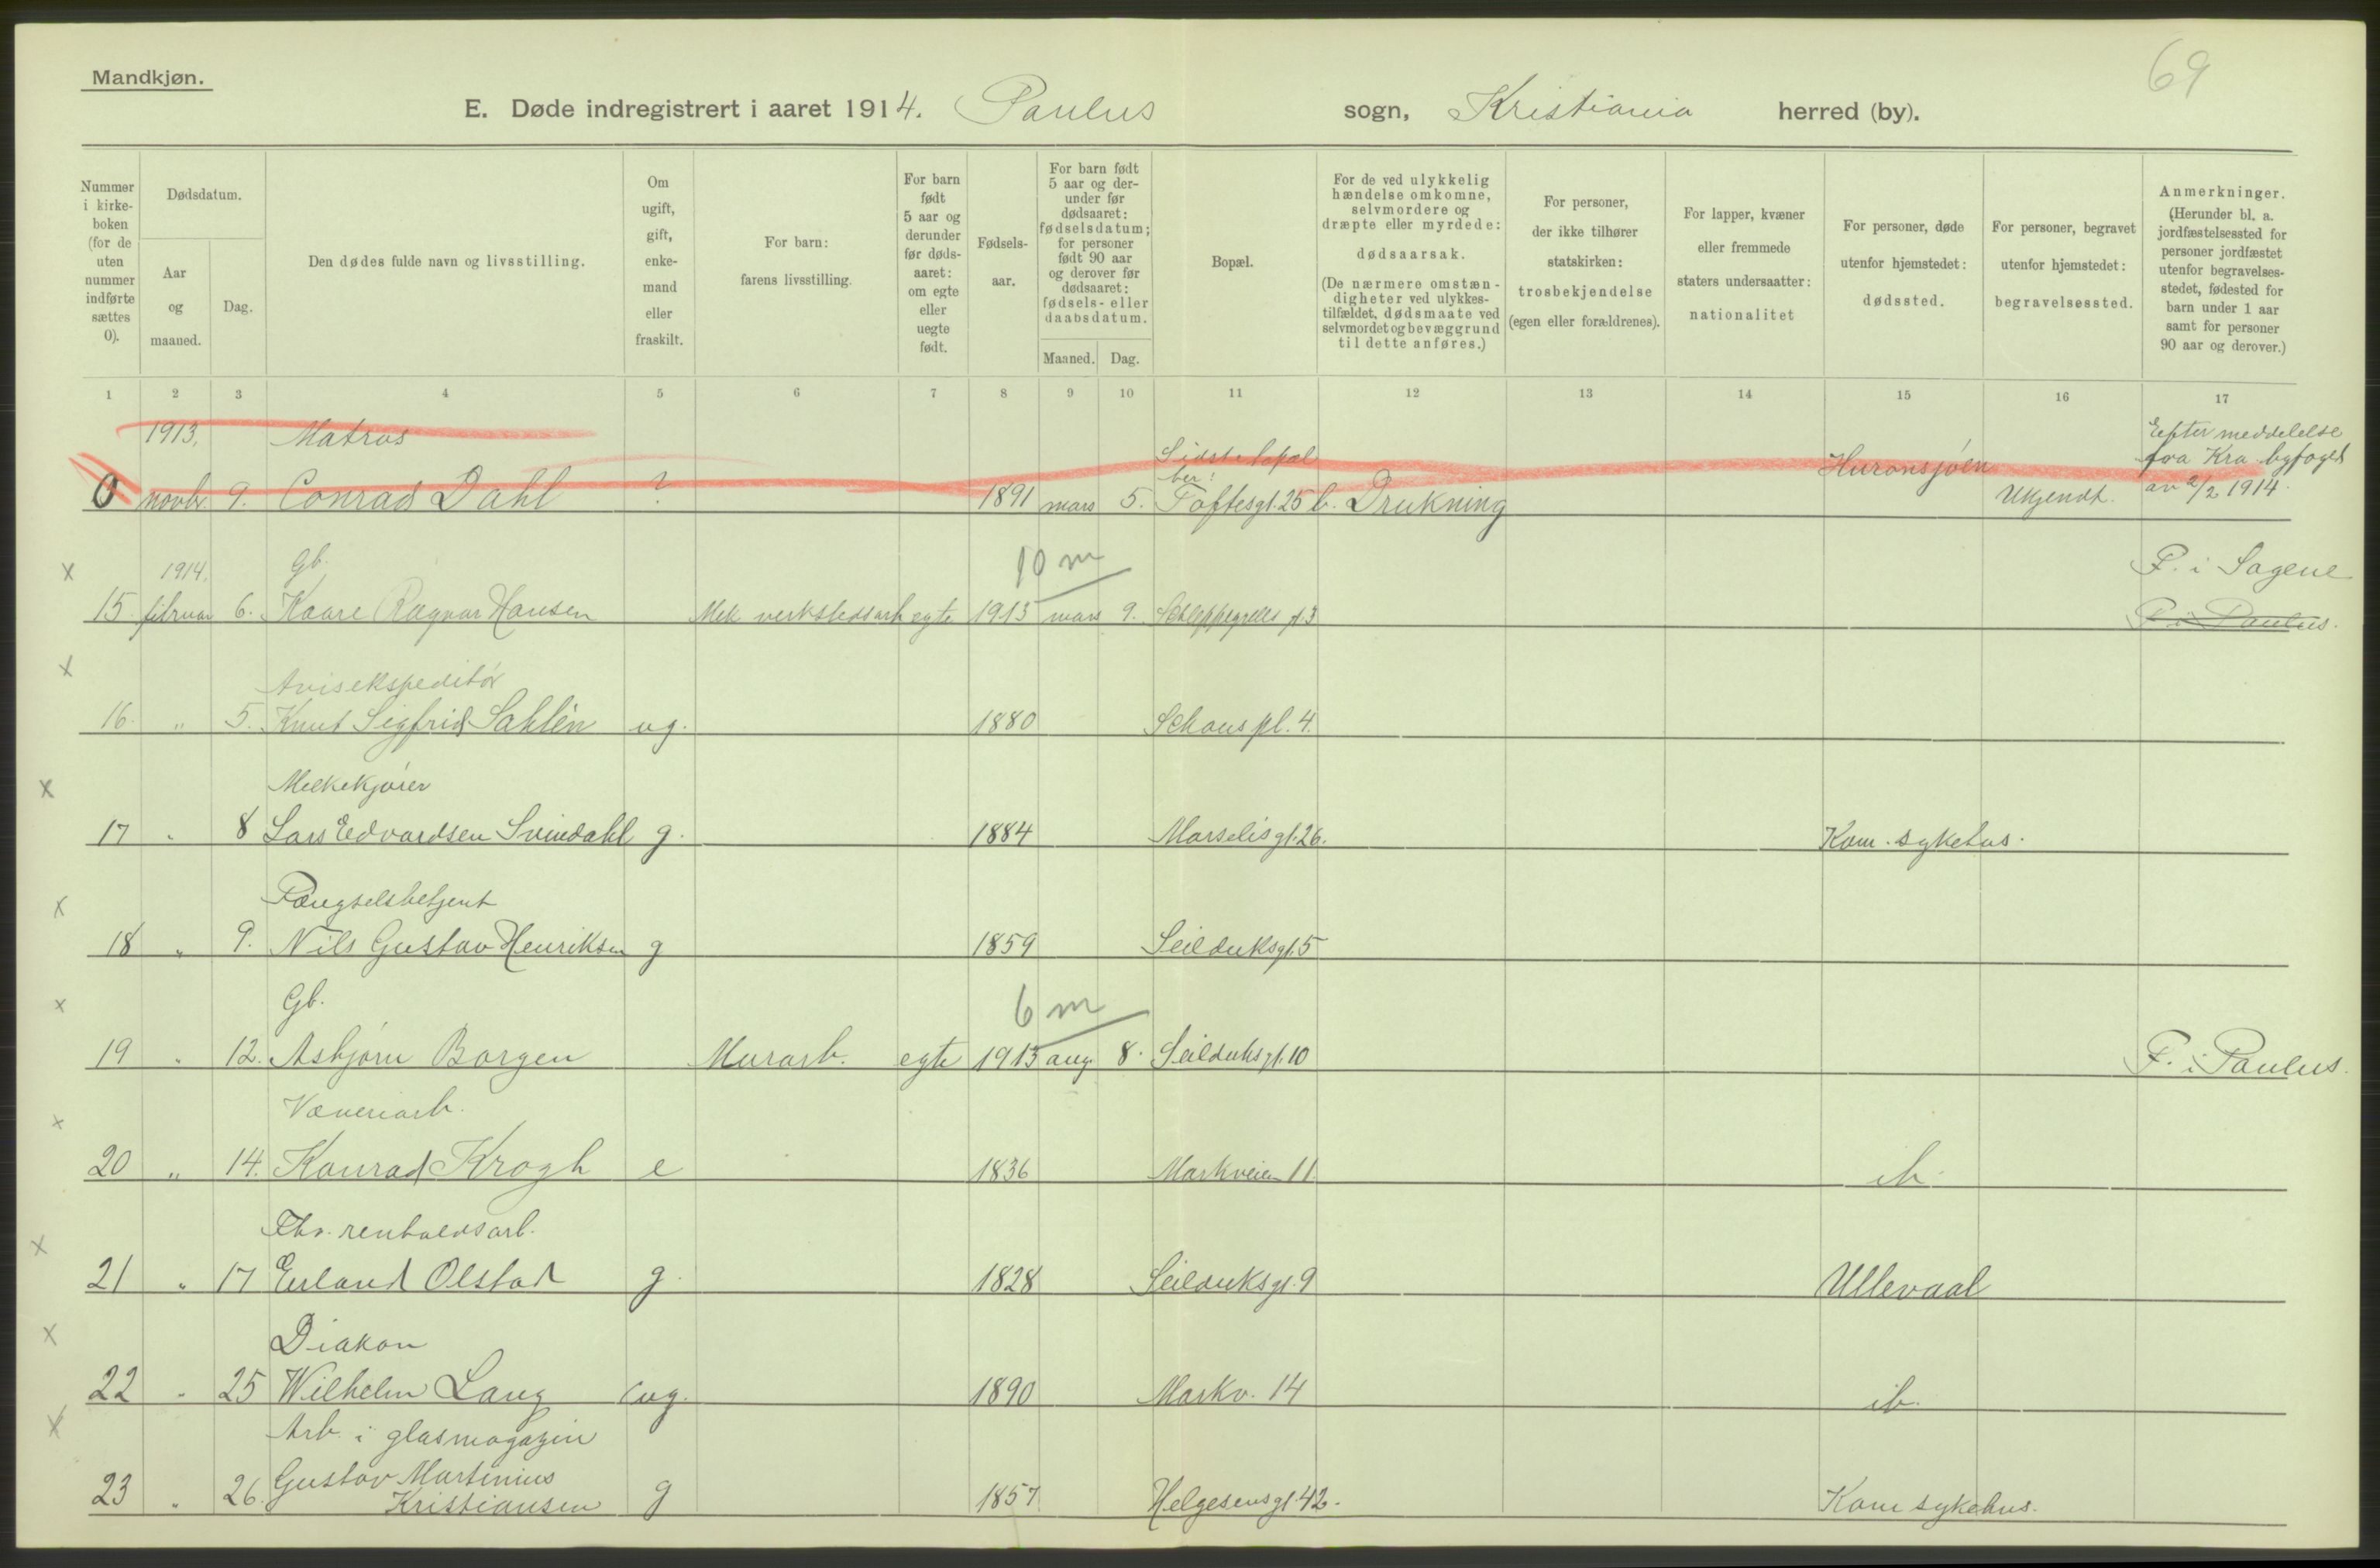 69
Mandkjøn.
E. Døde indregistrert i aaret 1914. Paulus sogn, Kristiania herred (by).
Nummer i kirke-boken (for de uten nummer indførte sættes 0).
Dødsdatum.
Aar og maaned.
Dag.
Den dødes fulde navn og livsstilling.
Om ugift, gift, enke-mand eller fraskilt.
For barn: farens livsstilling.
For barn født 5 aar og derunder før døds-aaret: om egte eller uegte født.
Fødsels-aar.
For barn født 5 aar og der-under før dødsaaret: fødselsdatum; for personer født 90 aar og derover før dødsaaret: fødsels- eller daabsdatum.
Maaned. Dag.
Bopæl.
For de ved ulykkelig hændelse omkomne, selvmordere og dræpte eller myrdede: dødsaarsak. (De nærmere omstæn-digheter ved ulykkes-tilfældet, dødsmaate ved selvmordet og bevæggrund til dette anføres.)
For personer, der ikke tilhører statskirken: trosbekjendelse (egen eller forældrenes).
For lapper, kvæner eller fremmede staters undersaatter: nationalitet
For personer, døde utenfor hjemstedet: dødssted.
For personer, begravet utenfor hjemstedet: begravelsessted.
Anmerkninger. (Herunder bl. a. jordfæstelsessted for personer jordfæstet utenfor begravelses-stedet, fødested for barn under 1 aar samt for personer 90 aar og derover.)
1 2 3 4 5 6 7 8 9 10 11 12 13 14 15 16 17
1913, Matros Sidste bopæl ber: Efter meddelelse fra Kra byfoged
0 novbr. 9. Conrad Dahl ? 1891 mars 5. Toftesgt. 25 b. Drukning Huronsjøen Ukjendt. av 2/2 1914.
x 1914. Gb. 10 m F. i Sagene
15 februar 6. Kaare Ragnar Hansen Mek. verkstedsarb egte 1913 mars 9. Schleppegrells gt. 3 F. i Paulus.
x Avisekspeditør
16. " 5. Knut Sigfrid Sahlén ug. 1880 Schous pl. 4.
x Melkekjører
17 " 8 Lars Edvardsen Svindahl g. 1884 Marselisgt. 26. Kom. sykehus.
x Fængselsbetjent
18 " 9. Nils Gustav Henriksen g 1859 Seilduksgt. 5
x Gb. 6 m
19 " 12. Asbjørn Borgen Murarb. egte 1913 aug. 8. Seilduksgt. 10 F. i Paulus.
x Væveriarb.
20 " 14. Konrad Krogh e 1836 Markveien 11. ib.
x Fhv. renholdsarb.
21 " 17 Erland Olstad g. 1828 Seilduksgt. 9 Ullevaal
x Diakon
22 " 25 Wilhelm Lang ug. 1890 Markv. 14 ib.
x Arb. i glasmagazin
23 " 26. Gustav Martinius Kristiansen g 1857 Helgesensgt. 42. Kom sykehus.